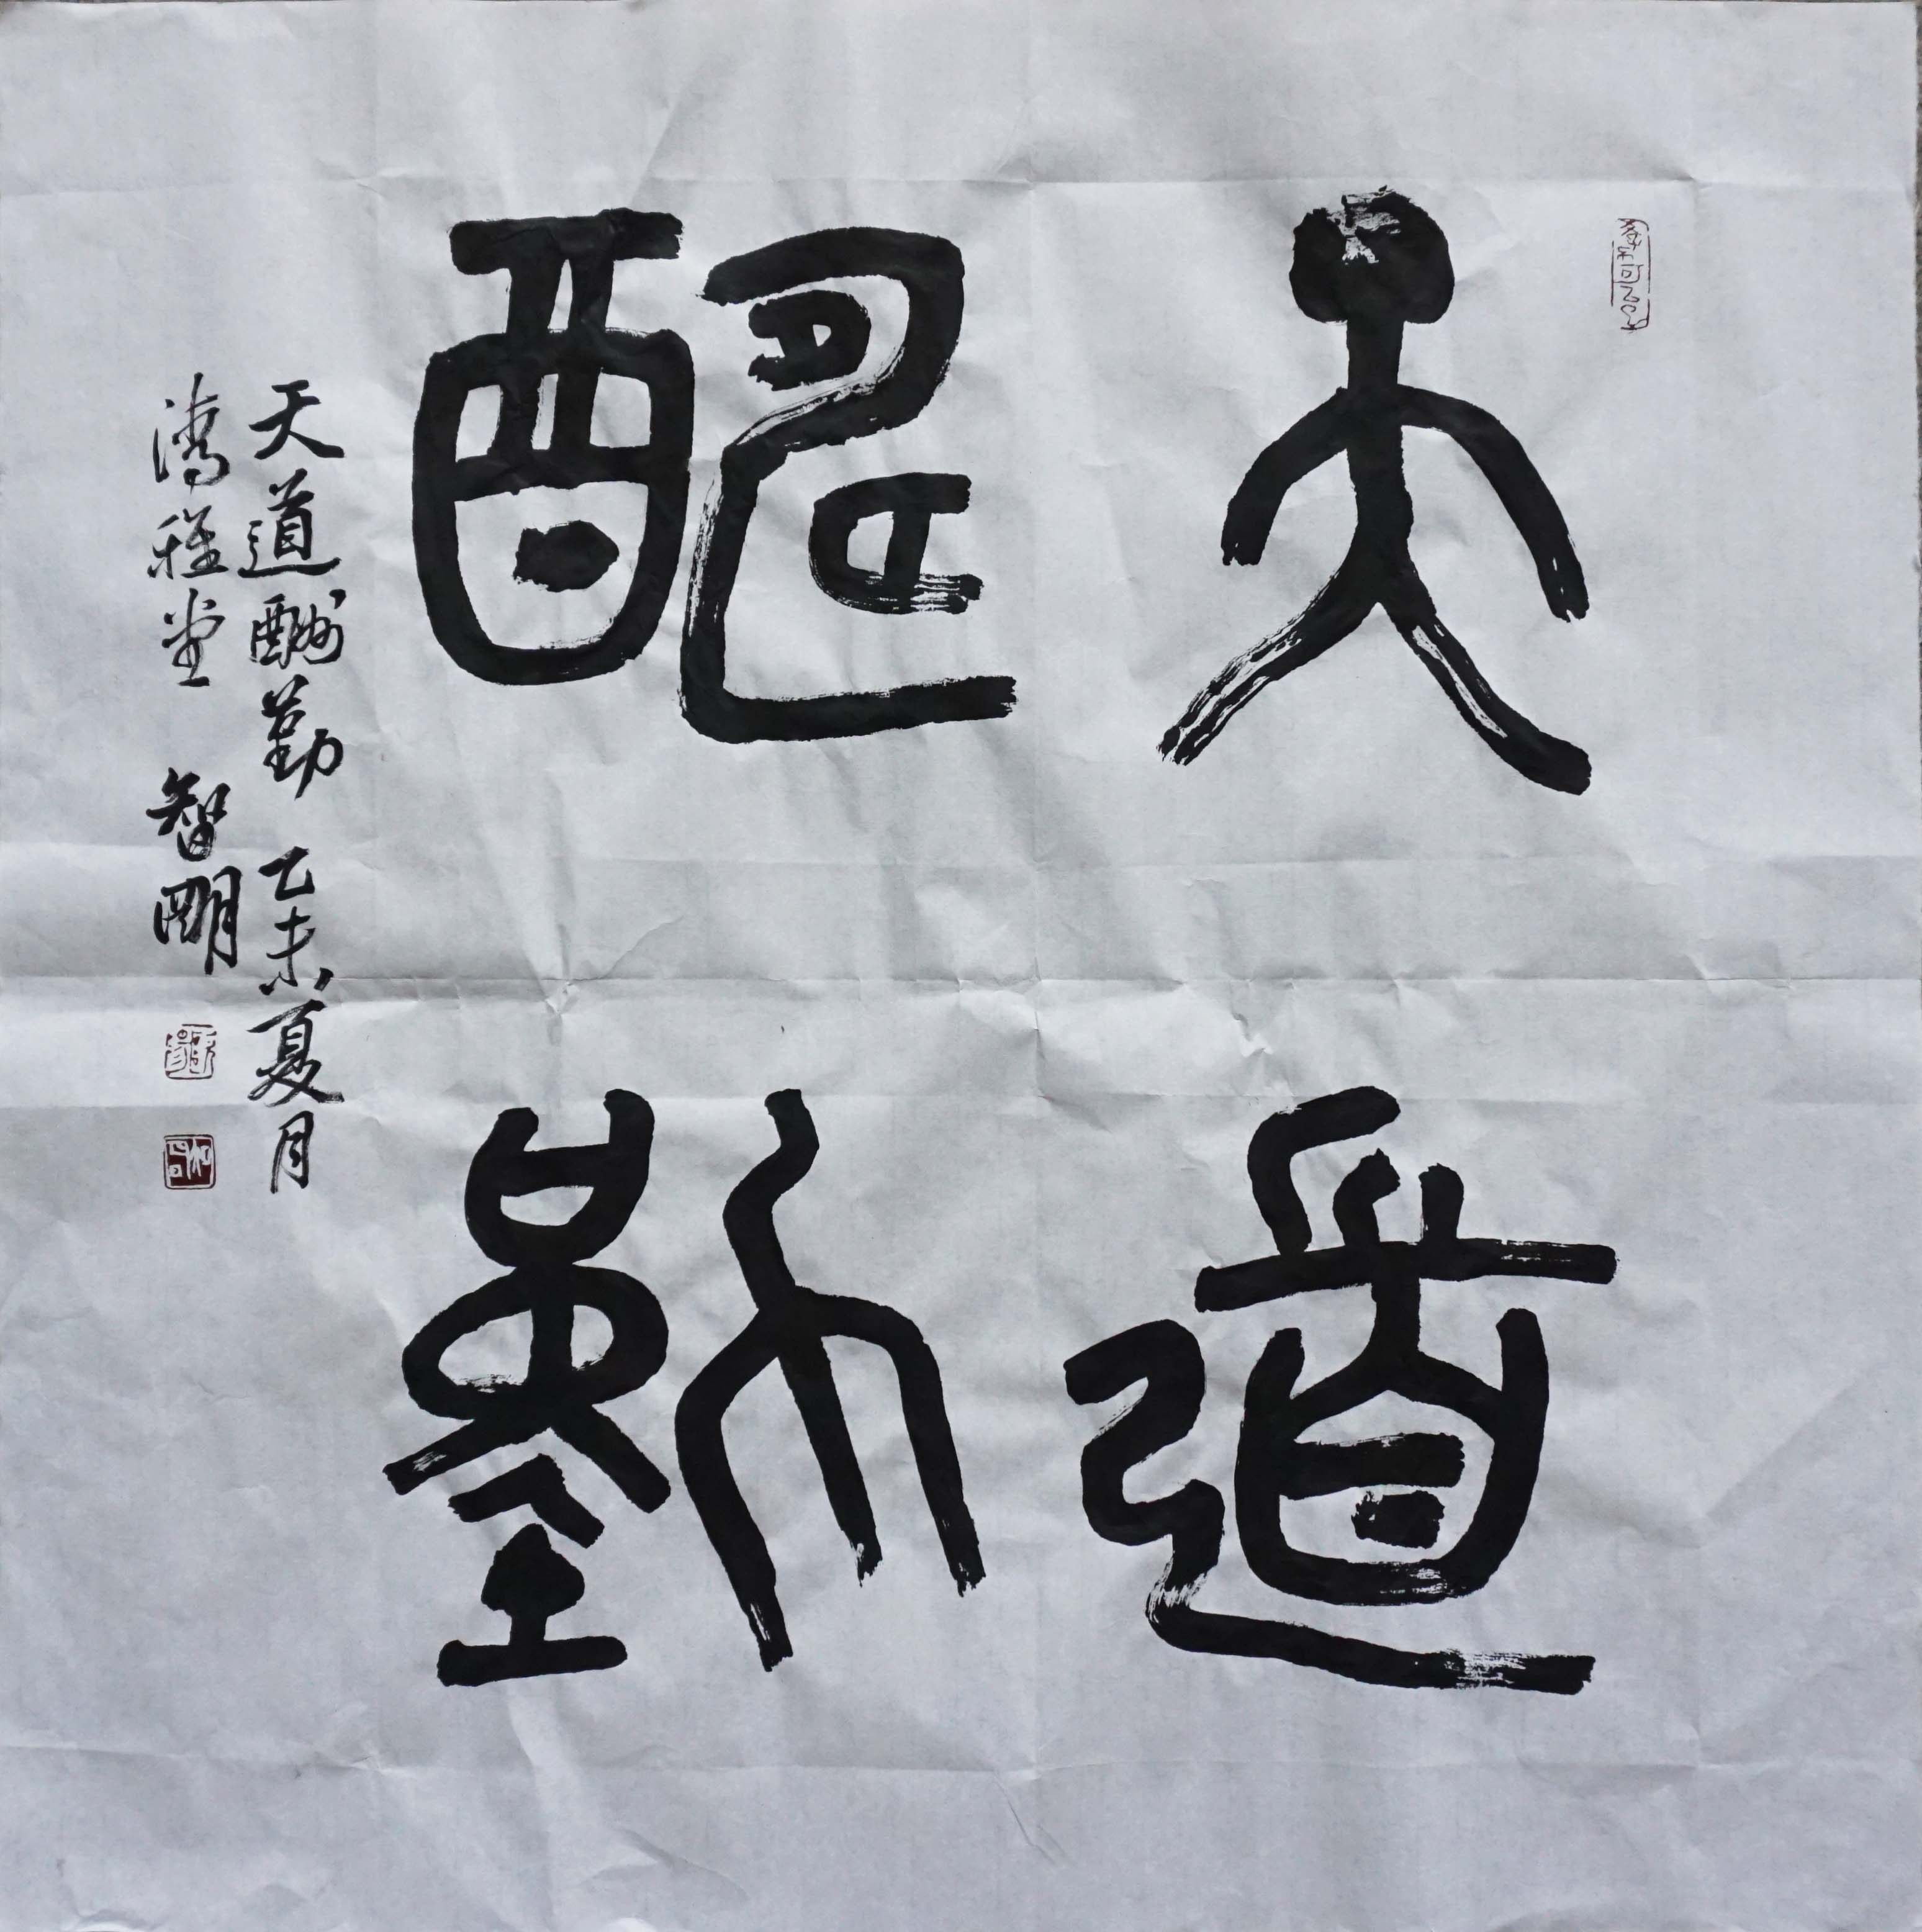 天道
酬勤
天道酬勤 乙未夏月
濤雅堂 智明